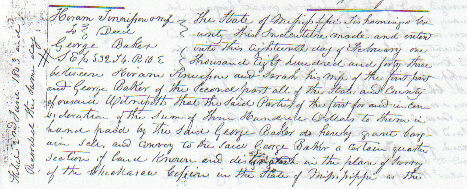 Hiram Finnipson & wf The State of Mississippi Itawamba Co
To } Deed unty This Indenture made and enter
George Baker into this Eighteenth day of February one
S E ¼ S32. T4. R10. E. Thousand Eight hundred and forty three
between Hiram and Sarah his wife of the first part
and George Baker of the Second part all of the State and County
aforesaid Witnesseth that the Said Parties of the first for and in con
sideration of the Sum of Hundred Dollars to them in
hand paid by the Said George Baker do hereby grant bar
gain Sell and convey to the Said George Baker a certain quarter
section of land Known and in the plan of Survey
of the Chickasaw Cession in the State of Mississippi as the
Filed 2nd June 1843 and
Recorded the Same day